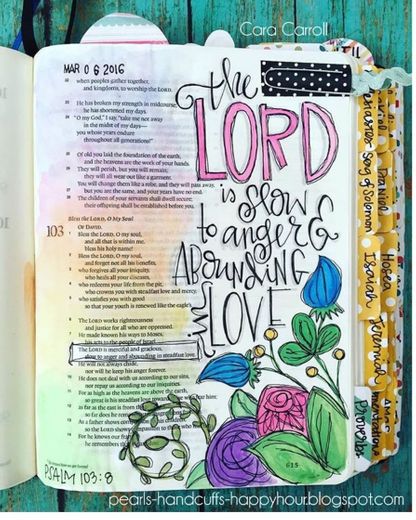 Cara Carroll
MAR 06 2016
when peoples gather together,
and kingdoms, to worship the LORD.
He has broken my strength in midcourse;
he has shortened my days.
"O my God," I say, "take me not away
in the midst of my days—
you whose years endure
throughout all generations!"
Of old you laid the foundation of the earth,
and the heavens are the work of your hands.
They will perish, but you will remain;
they will all wear out like a garment.
You will change them like a robe, and they will pass away,
but you are the same, and your years have no end.
The children of your servants shall dwell secure;
their offspring shall be established before you.
Bless the LORD, O My Soul
103
OF DAVID.
Bless the LORD, O my soul,
and all that is within me,
bless his holy name!
Bless the LORD, O my soul,
and forget not all his benefits,
who forgives all your iniquity,
who heals all your diseases,
who redeems your life from the pit,
who crowns you with steadfast love and mercy,
who satisfies you with good
so that your youth is renewed like the eagle's.
The LORD works righteousness
and justice for all who are oppressed.
He made known his ways to Moses,
his acts to the people of Israel.
The LORD is merciful and gracious,
slow to anger and abounding in steadfast love.
He will not always chide,
nor will he keep his anger forever.
He does not deal with us according to our sins,
nor repay us according to our iniquities.
For as high as the heavens are above the earth,
so great is his steadfast love toward those who fear him;
as far as the east is from the
so far does he remove
As a father shows
so the LORD shows compassion to those who
For he knows our frame;
he remembers
PSALM 103:8
the
LORD
is slow
to anger &
ABOUNDING
in
LOVE
615
Ezekiel
Daniel
Ecclesiastes
Song of Solomon
Hosea
Isaiah
Jeremiah
Amos
Lamentations
Proverbs
pearls-handcuffs-happyhour.blogspot.com